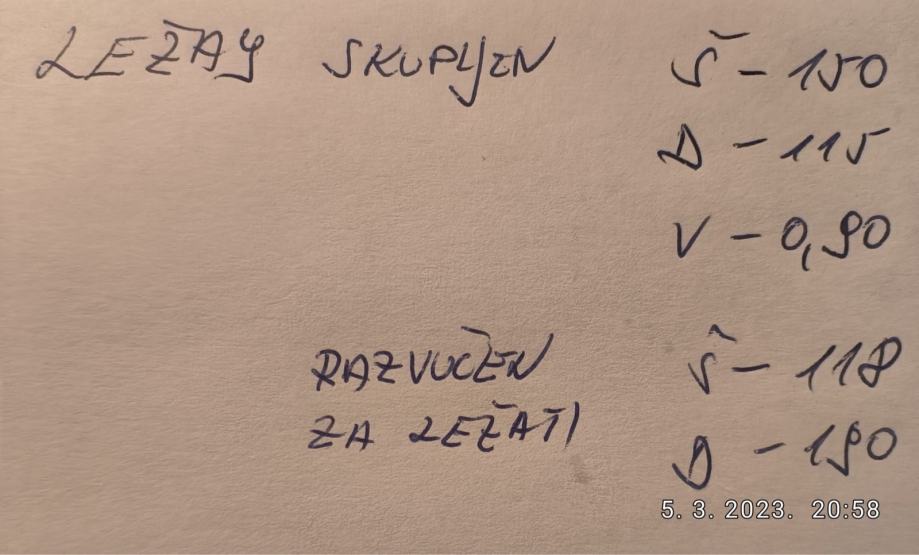 LEŽAJ SKUPLJEN Š - 150
D - 115
V - 0,90
RAZVUČEN Š - 118
ZA LEŽATI D - 190
5. 3. 2023. 20:58